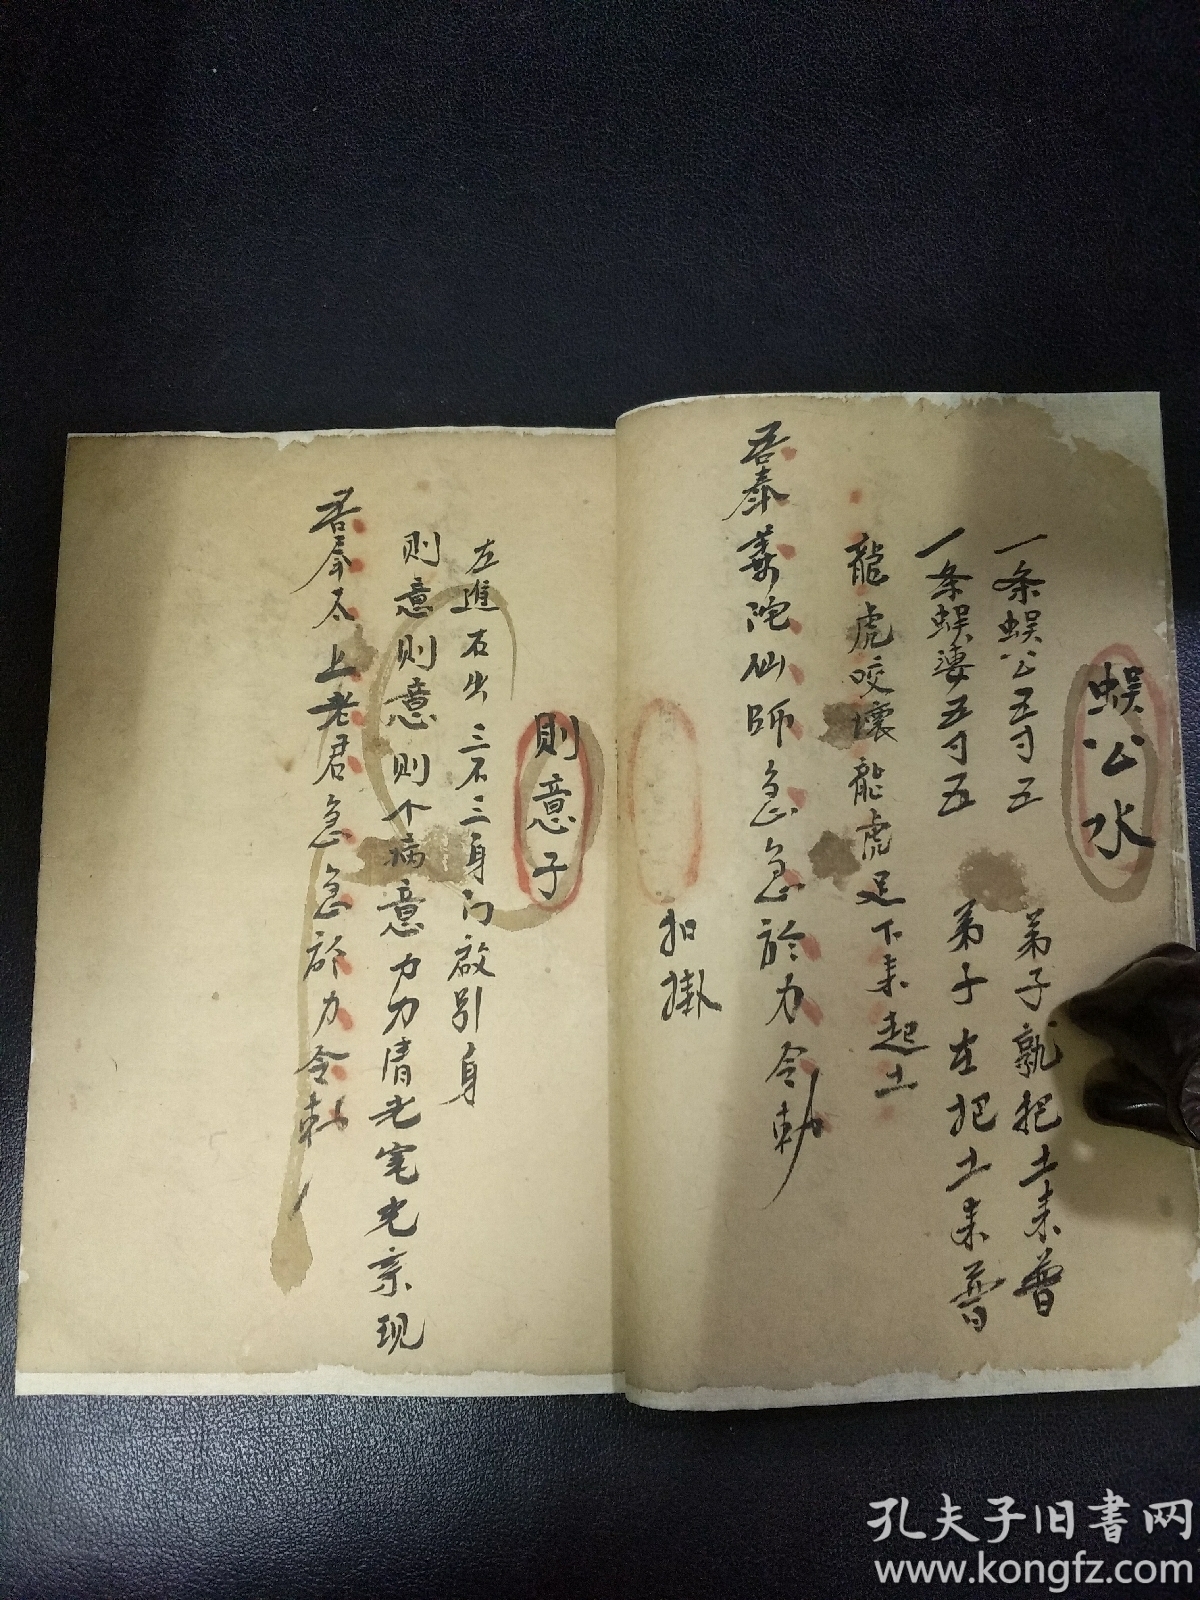 蜈公水
一条蜈公五寸五 弟子孰把土来普
一条蜈婆五寸五 弟子左把土来普
龍虎咬壞龍虎足下来起土
吾奉華陀仙師急急於力令勅
扣掛
則意子
左進石出三不三身门啟引身
則意則意則个病意力力清老宅老亲现
吾奉太上老君急急於力令勅
孔夫子旧书网
www.kongfz.com